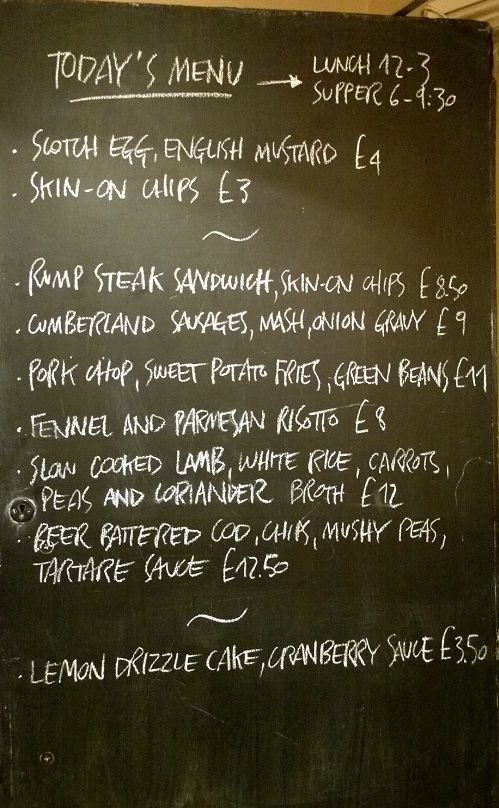 TODAY'S MENU → LUNCH 12-3
SUPPER 6-9:30
· SCOTCH EGG, ENGLISH MUSTARD £4
· SKIN-ON CHIPS £3
~
· RUMP STEAK SANDWICH, SKIN-ON CHIPS £8.50
· CUMBERLAND SAUSAGES, MASH, ONION GRAVY £9
· PORK CHOP, SWEET POTATO FRIES, GREEN BEANS £11
· FENNEL AND PARMESAN RISOTTO £8
· SLOW COOKED LAMB, WHITE RICE, CARROTS,
PEAS AND CORIANDER BROTH £12
· BEER BATTERED COD, CHIPS, MUSHY PEAS,
TARTARE SAUCE £12.50
~
· LEMON DRIZZLE CAKE, CRANBERRY SAUCE £3.50